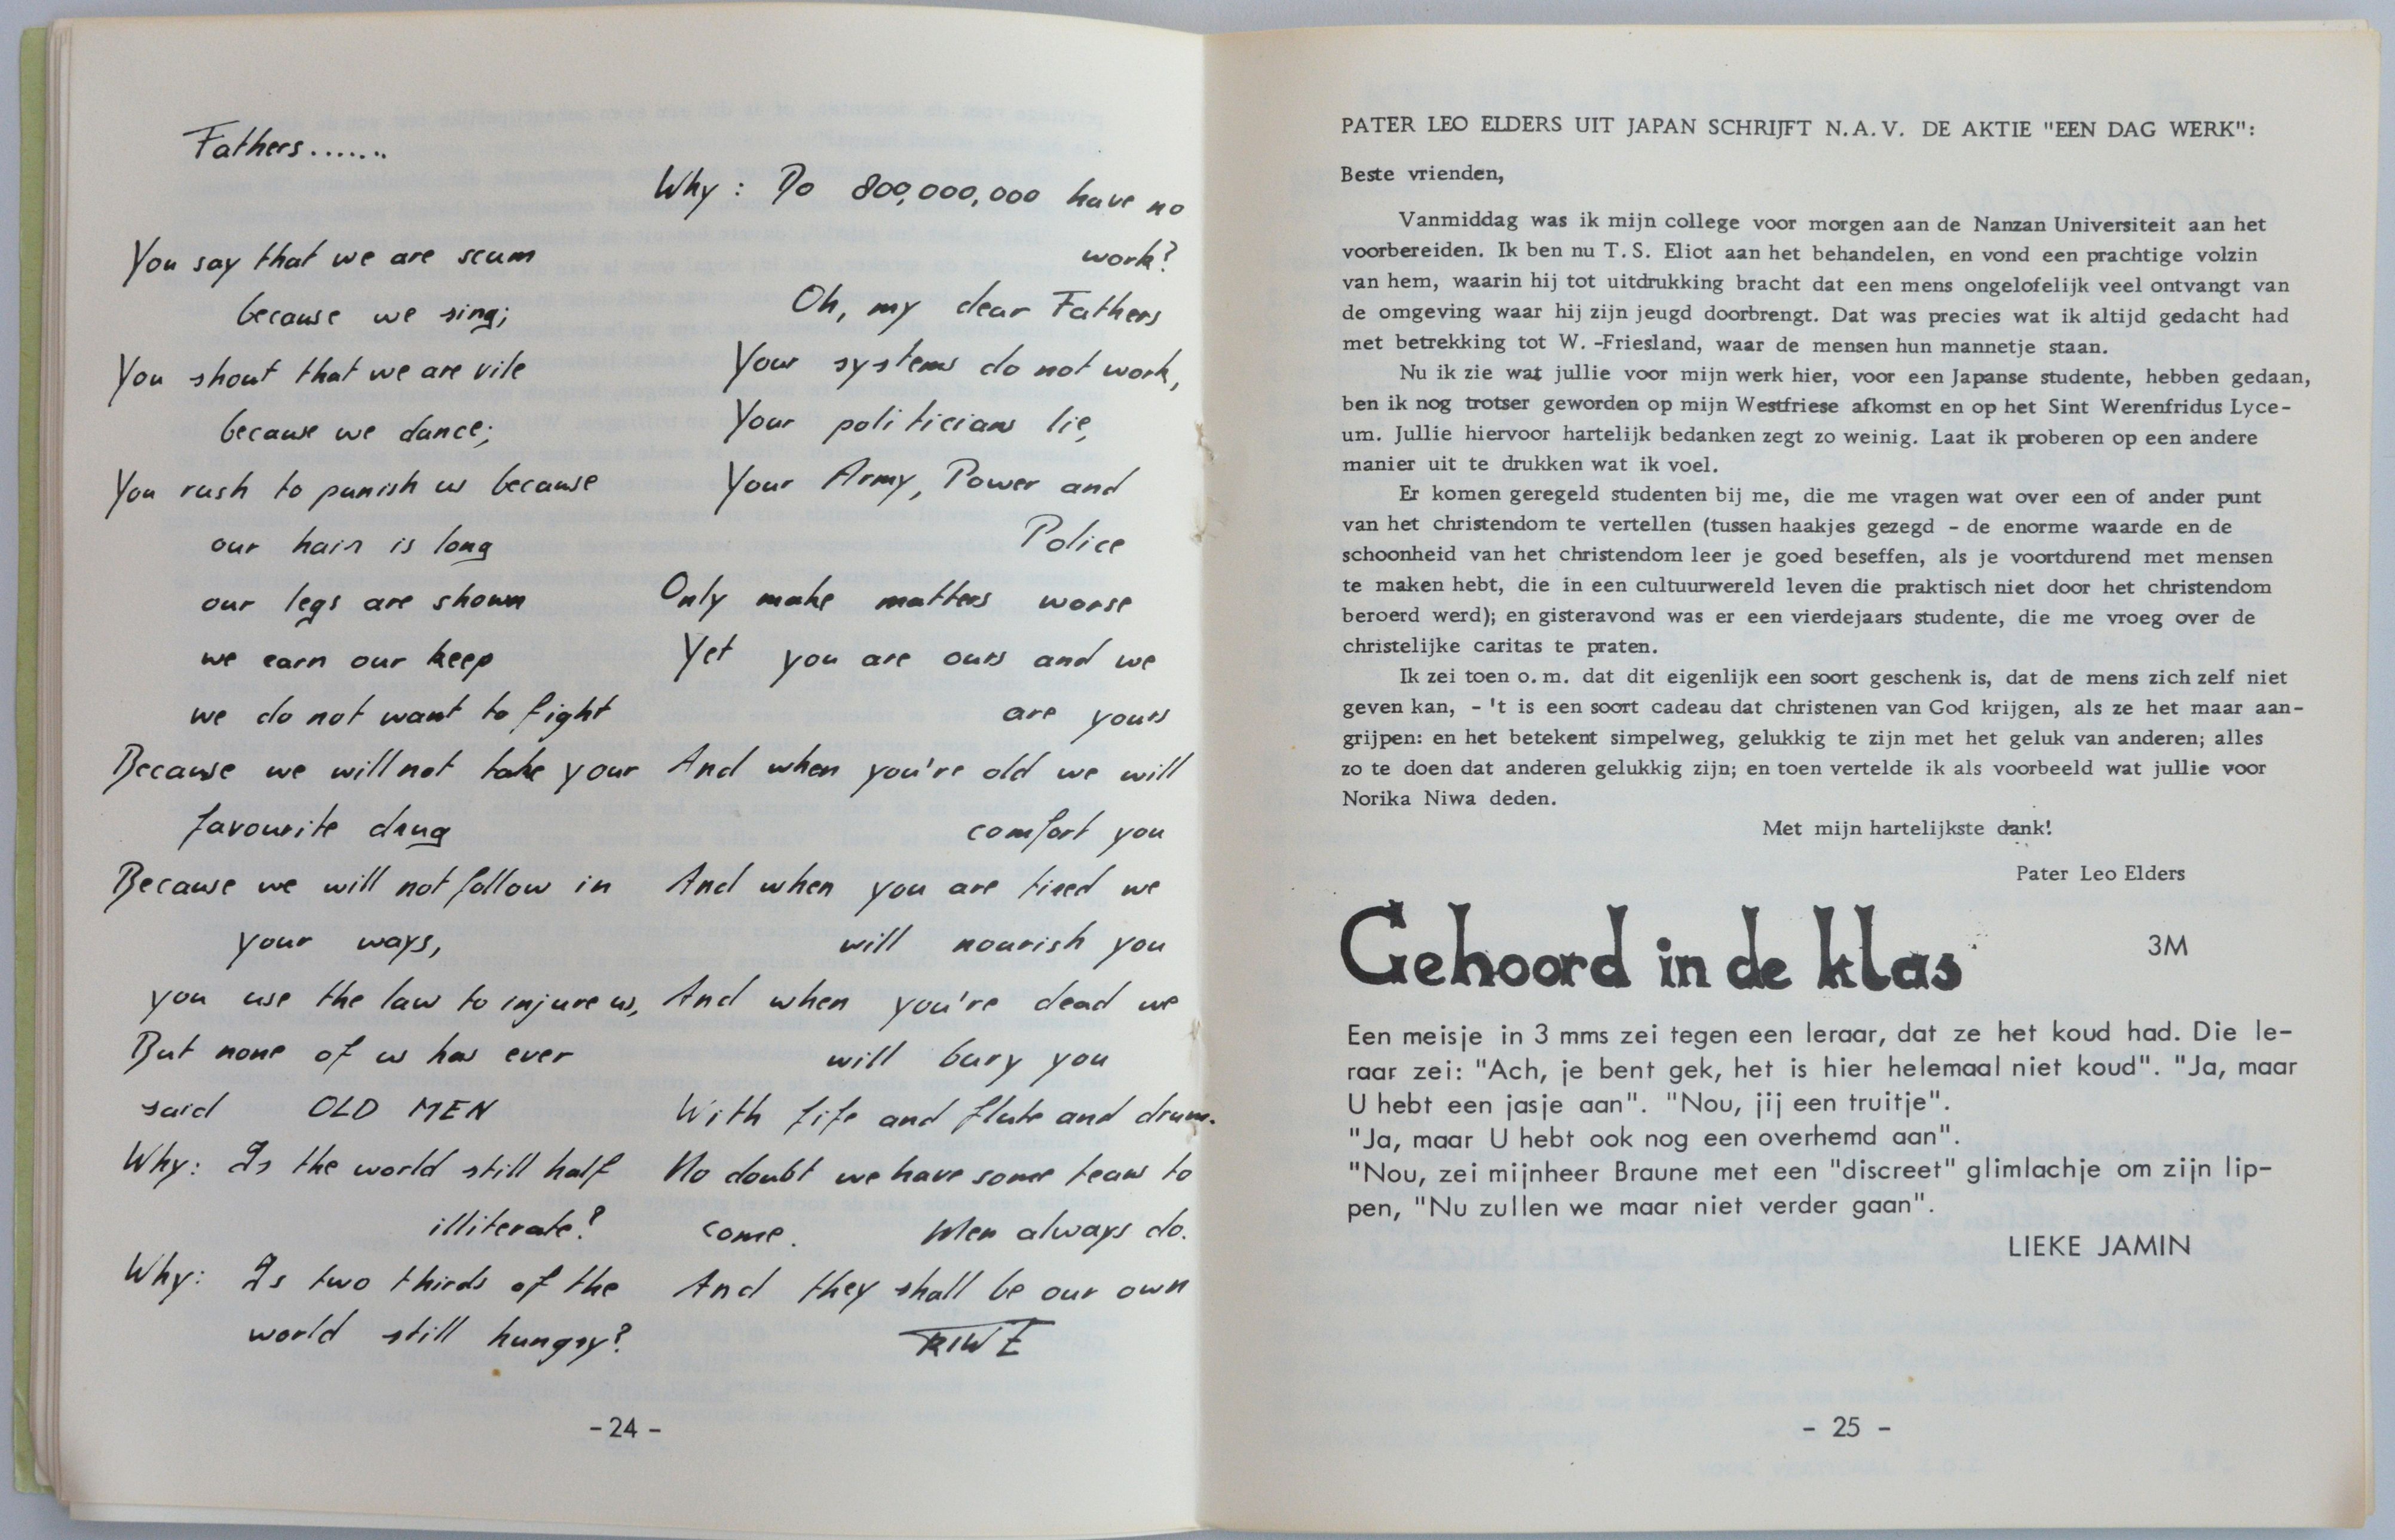 Fathers.......
You say that we are scum
because we sing;
You shout that we are vile
because we dance;
You rush to punish us because
our hair is long
our legs are shown
we earn our keep
we do not want to fight
Because we will not take your
favourite drug
Because we will not follow in
your ways,
you use the law to injure us,
But none of us has ever
said OLD MEN
Why: Is the world still half
illiterate?
Why: Is two thirds of the
world still hungry?
Why: Do 800,000,000 have no
work?
Oh, my dear Fathers
Your systems do not work,
Your politicians lie,
Your Army, Power and
Police
Only make matters worse
Yet you are ours and we
are yours
And when you're old we will
comfort you
And when you are tired we
will nourish you
And when you're dead we
will bury you
With fife and flute and drum.
No doubt we have some tears to
come. Men always do.
And they shall be our own
RIWE
-24-
PATER LEO ELDERS UIT JAPAN SCHRIJFT N.A.V. DE AKTIE "EEN DAG WERK":
Beste vrienden,
Vanmiddag was ik mijn college voor morgen aan de Nanzan Universiteit aan het
voorbereiden. Ik ben nu T.S. Eliot aan het behandelen, en vond een prachtige volzin
van hem, waarin hij tot uitdrukking bracht dat een mens ongelofelijk veel ontvangt van
de omgeving waar hij zijn jeugd doorbrengt. Dat was precies wat ik altijd gedacht had
met betrekking tot W. -Friesland, waar de mensen hun mannetje staan.
Nu ik zie wat jullie voor mijn werk hier, voor een Japanse studente, hebben gedaan,
ben ik nog trotser geworden op mijn Westfriese afkomst en op het Sint Werenfridus Lyce-
um. Jullie hiervoor hartelijk bedanken zegt zo weinig. Laat ik proberen op een andere
manier uit te drukken wat ik voel.
Er komen geregeld studenten bij me, die me vragen wat over een of ander punt
van het christendom te vertellen (tussen haakjes gezegd - de enorme waarde en de
schoonheid van het christendom leer je goed beseffen, als je voortdurend met mensen
te maken hebt, die in een cultuurwereld leven die praktisch niet door het christendom
beroerd werd); en gisteravond was er een vierdejaars studente, die me vroeg over de
christelijke caritas te praten.
Ik zei toen o.m. dat dit eigenlijk een soort geschenk is, dat de mens zich zelf niet
geven kan, - 't is een soort cadeau dat christenen van God krijgen, als ze het maar aan-
grijpen: en het betekent simpelweg, gelukkig te zijn met het geluk van anderen; alles
zo te doen dat anderen gelukkig zijn; en toen vertelde ik als voorbeeld wat jullie voor
Norika Niwa deden.
Met mijn hartelijkste dank!
Pater Leo Elders
Gehoord in de klas 3M
Een meisje in 3 mms zei tegen een leraar, dat ze het koud had. Die le-
raar zei: "Ach, je bent gek, het is hier helemaal niet koud". "Ja, maar
U hebt een jasje aan". "Nou, jij een truitje".
"Ja, maar U hebt ook nog een overhemd aan".
"Nou, zei mijnheer Braune met een "discreet" glimlachje om zijn lip-
pen, "Nu zullen we maar niet verder gaan".
LIEKE JAMIN
- 25 -